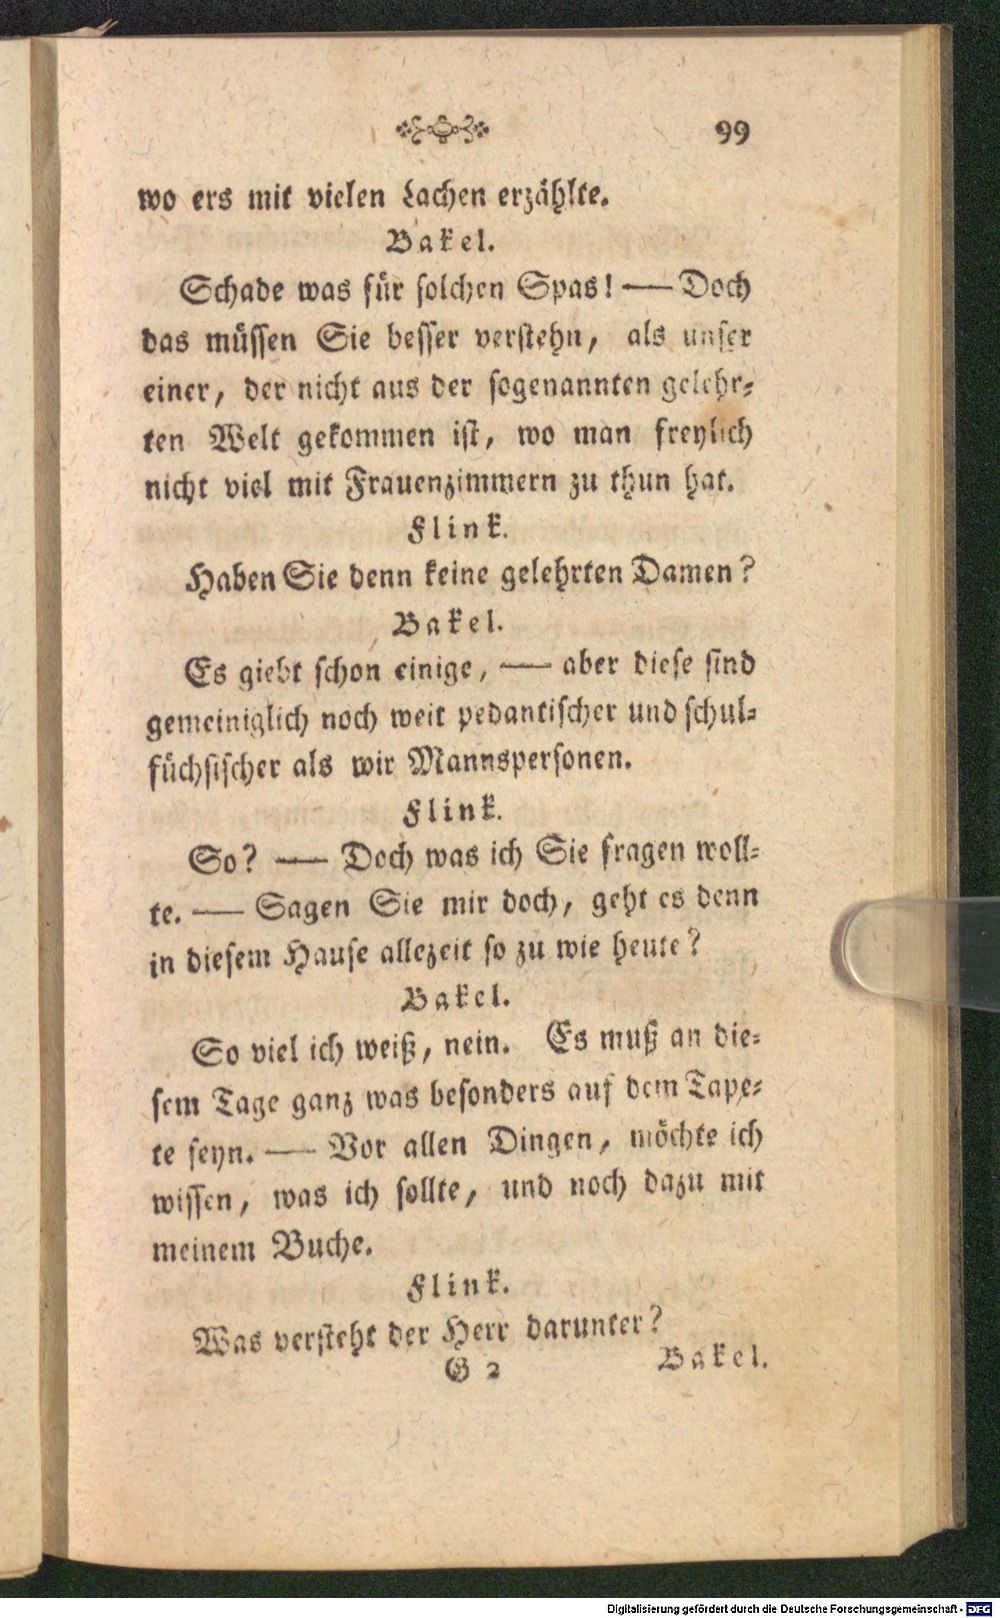 99
wo ers mit vielen Lachen erzählte.
Bakel.
Schade was für solchen Spas! — Doch
das müssen Sie besser verstehn, als unser
einer, der nicht aus der sogenannten gelehr-
ten Welt gekommen ist, wo man freylich
nicht viel mit Frauenzimmern zu thun hat.
Flink.
Haben Sie denn keine gelehrten Damen?
Bakel.
Es giebt schon einige, — aber diese sind
gemeiniglich noch weit pedantischer und schul-
füchsischer als wir Mannspersonen.
Flink.
So? — Doch was ich Sie fragen woll-
te. — Sagen Sie mir doch, geht es denn
in diesem Hause allezeit so zu wie heute?
Bakel.
So viel ich weiß, nein. Es muß an die-
sem Tage ganz was besonders auf dem Tape-
te seyn. — Vor allen Dingen, möchte ich
wissen, was ich sollte, und noch dazu mit
meinem Buche.
Flink.
Was versteht der Herr darunter?
G 2 Bakel.
Digitalisierung gefördert durch die Deutsche Forschungsgemeinschaft - DFG